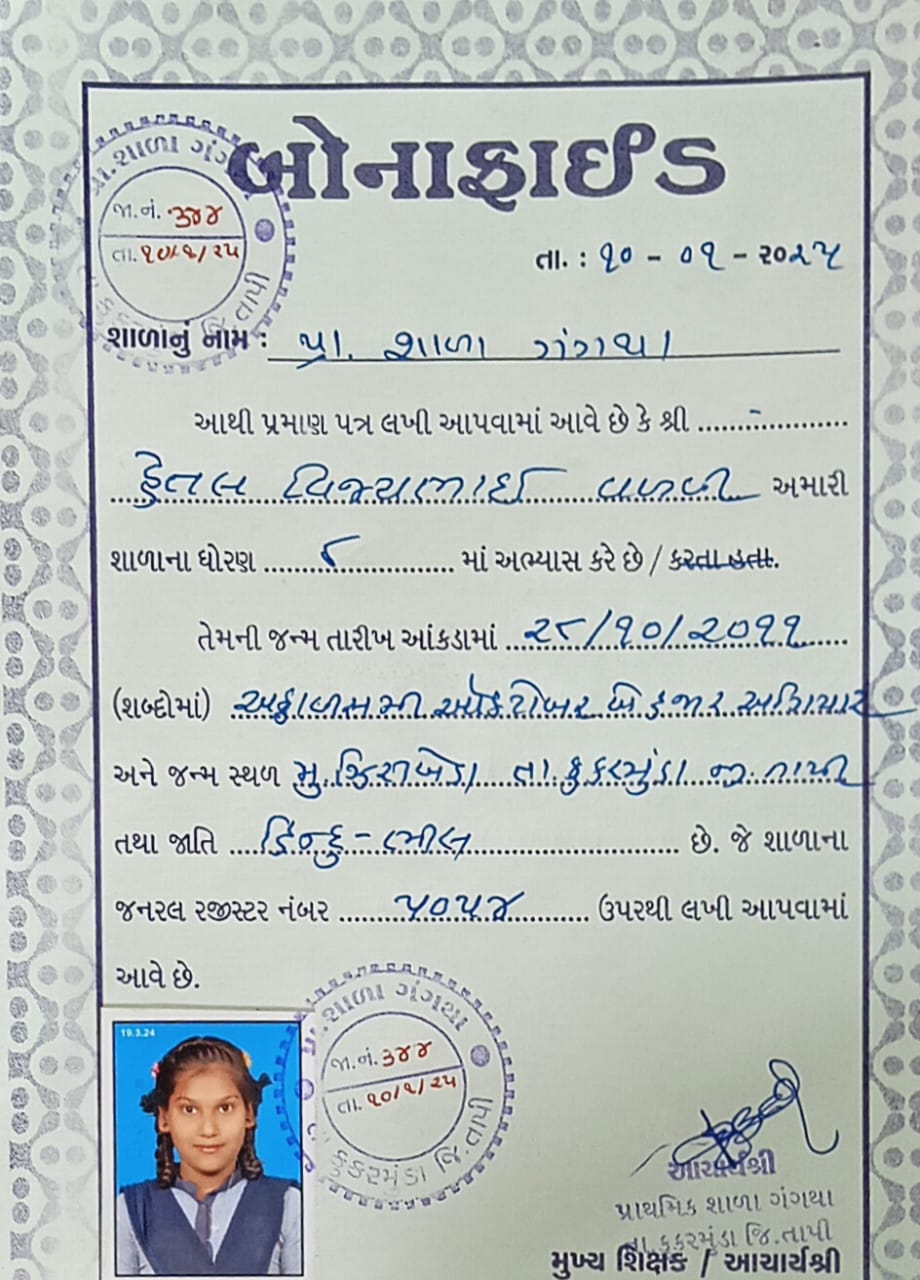 બોનાફાઈડ
પ્રા. શાળા ગંગથા
જા.નં. ૩૪૪
તા. ૧૦/૧/૨૫
કુકરમુંડા જિ.તાપી
તા. : ૧૦ - ૦૧ - ૨૦૨૫
શાળાનું નામ : પ્રા. શાળા ગંગથા
આથી પ્રમાણ પત્ર લખી આપવામાં આવે છે કે શ્રી ........-..........
હેતલ વિજયભાઈ વળવી અમારી
શાળાના ધોરણ ......૮...... માં અભ્યાસ કરે છે / કરતા હતા.
તેમની જન્મ તારીખ આંકડામાં ૨૮/૧૦/૨૦૧૧
(શબ્દોમાં) અઠ્ઠાવીસમી ઓક્ટોબર બે હજાર અગિયાર
અને જન્મ સ્થળ મુ. તા. કુકરમુંડા જી. તાપી
તથા જાતિ હિન્દુ - ભીલ છે. જે શાળાના
જનરલ રજીસ્ટર નંબર ૫૦૫૪ ઉપરથી લખી આપવામાં
આવે છે.
19.3.24
પ્રા. શાળા ગંગથા
જા.નં. ૩૪૪
તા. ૧૦/૧/૨૫
કુકરમુંડા જિ.તાપી
આચાર્યશ્રી
પ્રાથમિક શાળા ગંગથા
તા.કુકરમુંડા જિ.તાપી
મુખ્ય શિક્ષક / આચાર્યશ્રી